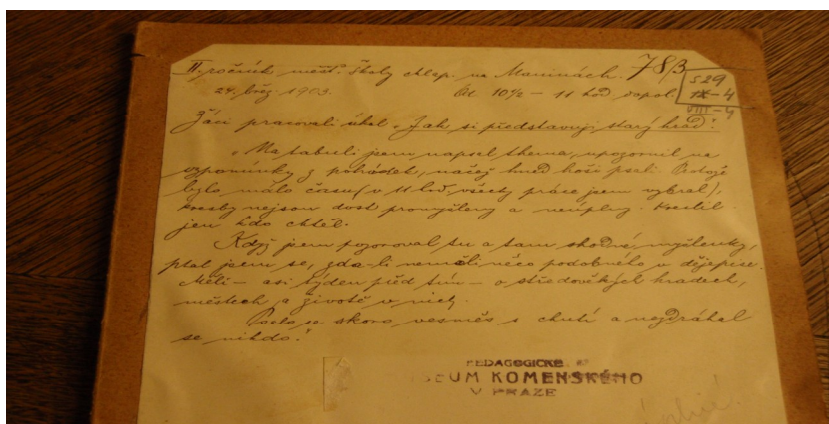 II. ročník měšť. školy chlap. na Maninách. 78/3
24. břez. 1903. Od 10½ – 11 hod dopol.
529
IX–4
VIII–4
Žáci pracovali úkol „Jak si představuji starý hrad".
„Na tabuli jsem napsal thema, upozornil na
vzpomínky z pohádek, načež hned hoši psali. Protože
bylo málo času (v 11 hod. všecky práce jsem vybral),
kresby nejsou dost promyšleny a neúplny. Kreslil
jen kdo chtěl.
Když jsem pozoroval tu a tam shodné myšlenky,
ptal jsem se, zda-li neměli něco podobného v dějepise.
Měli – asi týden před tím – o středověkých hradech,
městech a životě v nich.
Psalo se skoro vesměs s chutí a nezdráhal
se nikdo."
PEDAGOGICKÉ
MUSEUM KOMENSKÉHO
V PRAZE